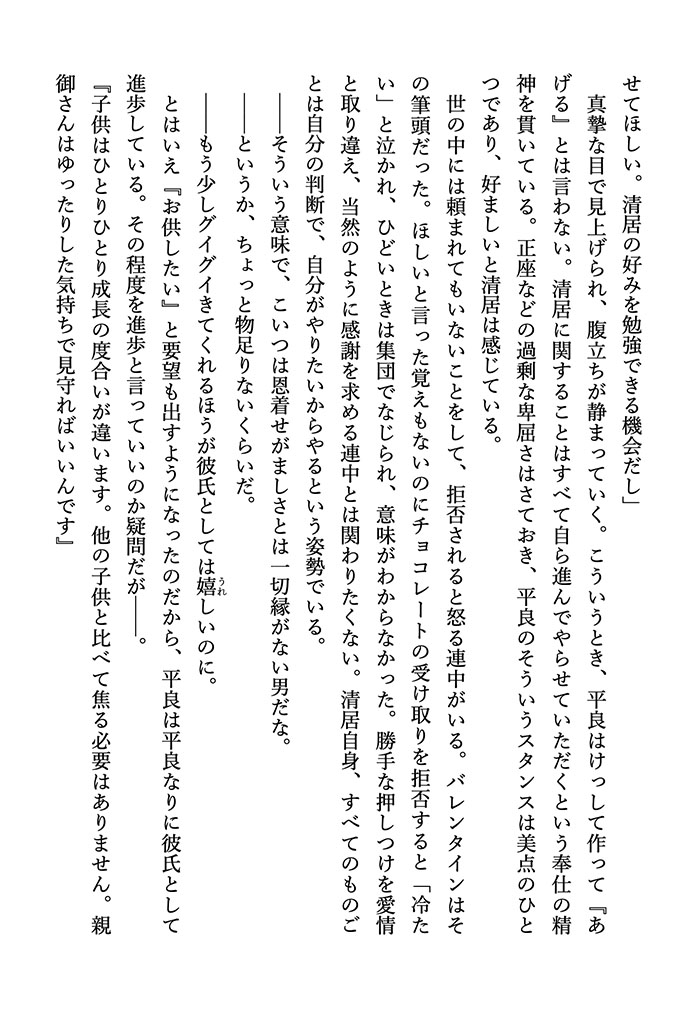 せてほしい。清居の好みを勉強できる機会だし」
　真摯な目で見上げられ、腹立ちが静まっていく。こういうとき、平良はけっして作って『あ
げる』とは言わない。清居に関することはすべて自ら進んでやらせていただくという奉仕の精
神を貫いている。正座などの過剰な卑屈さはさておき、平良のそういうスタンスは美点のひと
つであり、好ましいと清居は感じている。
　世の中には頼まれてもいないことをして、拒否されると怒る連中がいる。バレンタインはそ
の筆頭だった。ほしいと言った覚えもないのにチョコレートの受け取りを拒否すると「冷た
い」と泣かれ、ひどいときは集団でなじられ、意味がわからなかった。勝手な押しつけを愛情
と取り違え、当然のように感謝を求める連中とは関わりたくない。清居自身、すべてのものご
とは自分の判断で、自分がやりたいからやるという姿勢でいる。
　――そういう意味で、こいつは恩着せがましさとは一切縁がない男だな。
　――というか、ちょっと物足りないくらいだ。
　――もう少しグイグイきてくれるほうが彼氏としては嬉うれしいのに。
　とはいえ『お供したい』と要望も出すようになったのだから、平良は平良なりに彼氏として
進歩している。その程度を進歩と言っていいのか疑問だが――。
『子供はひとりひとり成長の度合いが違います。他の子供と比べて焦る必要はありません。親
御さんはゆったりした気持ちで見守ればいいんです』